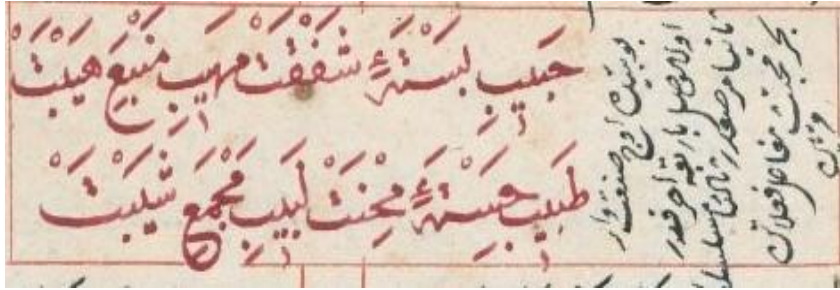 حَبِيبِ بَسْتَهٔ شَفَقَتْ مَهِيبِ مَنْبَعِ هَيْبَتْ
طَبِيبِ خَسْتَهٔ مِحْنَتْ لَبِيبِ مَجْمَعِ شَيْبَتْ
بو بيتك اوچ صنعتى وار
اولا موصل باربعة احرفدر
ثانيا مرصعدر ثالثا مسلسلدر
بحر مجتث مفاعلن فعلاتن